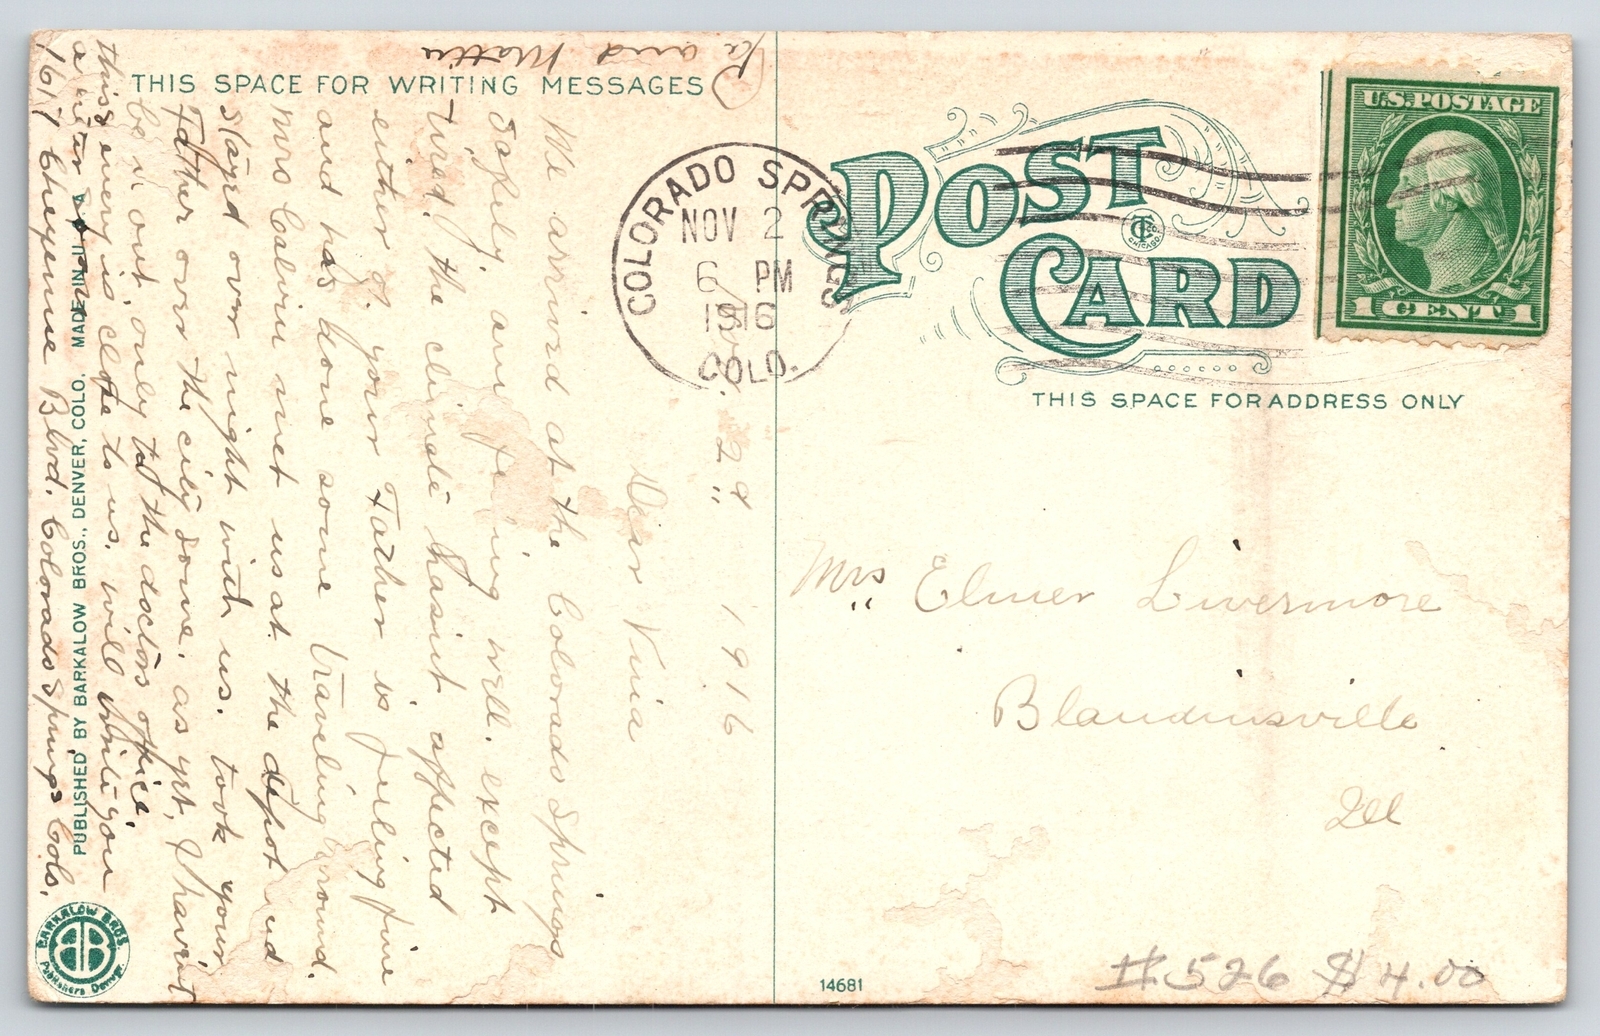 THIS SPACE FOR WRITING MESSAGES
Nov. 29 1916
Dear Vinia
We arrived at the Colorado Springs
Safely, am feeling well. except
tired. the climate hasint affected
either of your Father is feeling fine
and has done some traveling around.
Mrs Calvin met us at the depot and
stayed over night with us. took your
Father over the city some. as yet, I havint
be n out, only to the doctors office,
this enery is close to us, will write you
a letter soon
1617 Cheyenne Blvd. Colorado Springs Colo.
Pa and Mattie
COLORADO SPRINGS
NOV 2
6 PM
1916
COLO.
POST CARD
CHICAGO
U.S. POSTAGE
1 CENT 1
THIS SPACE FOR ADDRESS ONLY
Mrs Elmer Livermore
Blandinsville
Ill
PUBLISHED BY BARKALOW BROS., DENVER, COLO. MADE IN U.S.A
BARKALOW BROS
BB
Publishers Denver.
14681
#526 $4.00